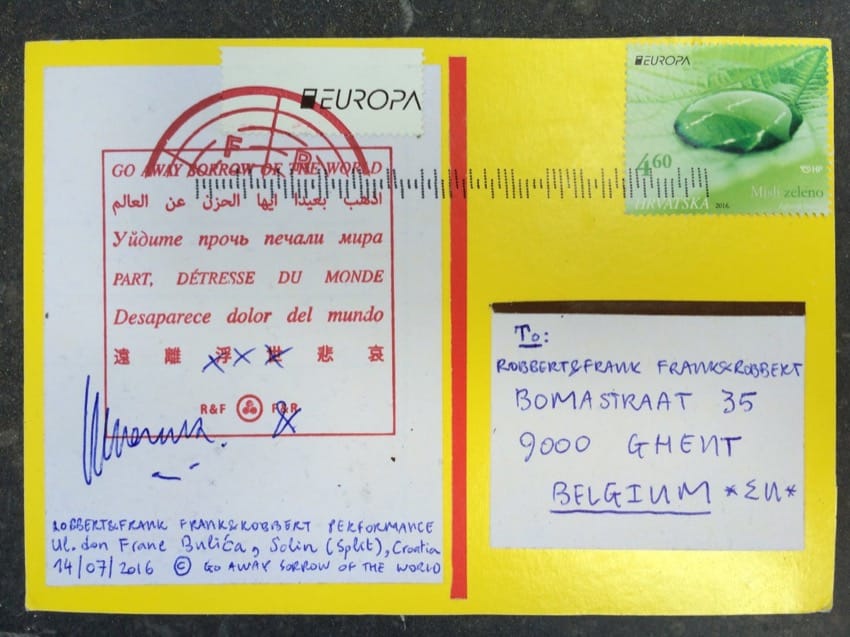 EUROPA
F R
GO AWAY SORROW OF THE WORLD
اذهب بعيدا ايها الحزن عن العالم
Уйдите прочь печали мира
PART, DÉTRESSE DU MONDE
Desaparece dolor del mundo
遠離浮世悲哀
R&F F&R
&
ROBBERT&FRANK FRANK&ROBBERT PERFORMANCE
Ul. don Frane Bulića, Solin (Split), Croatia
14/07/2016 © GO AWAY SORROW OF THE WORLD
EUROPA
4,60
HP
Misli zeleno
HRVATSKA 2016.
To:
ROBBERT&FRANK FRANK&ROBBERT
BOMASTRAAT 35
9000 GHENT
BELGIUM *EU*